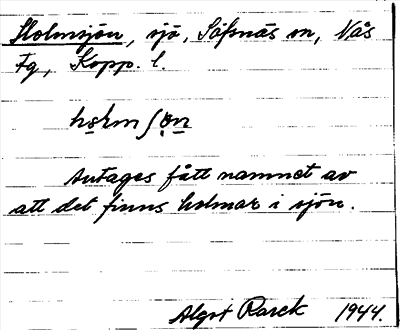 Holmsjön, sjö, Säfsnäs sn, Nås
Fg, Kopp. l.
holmʃön
Antages fått namnet av
att det finns holmar i sjön.
Algot Rarek 1944.